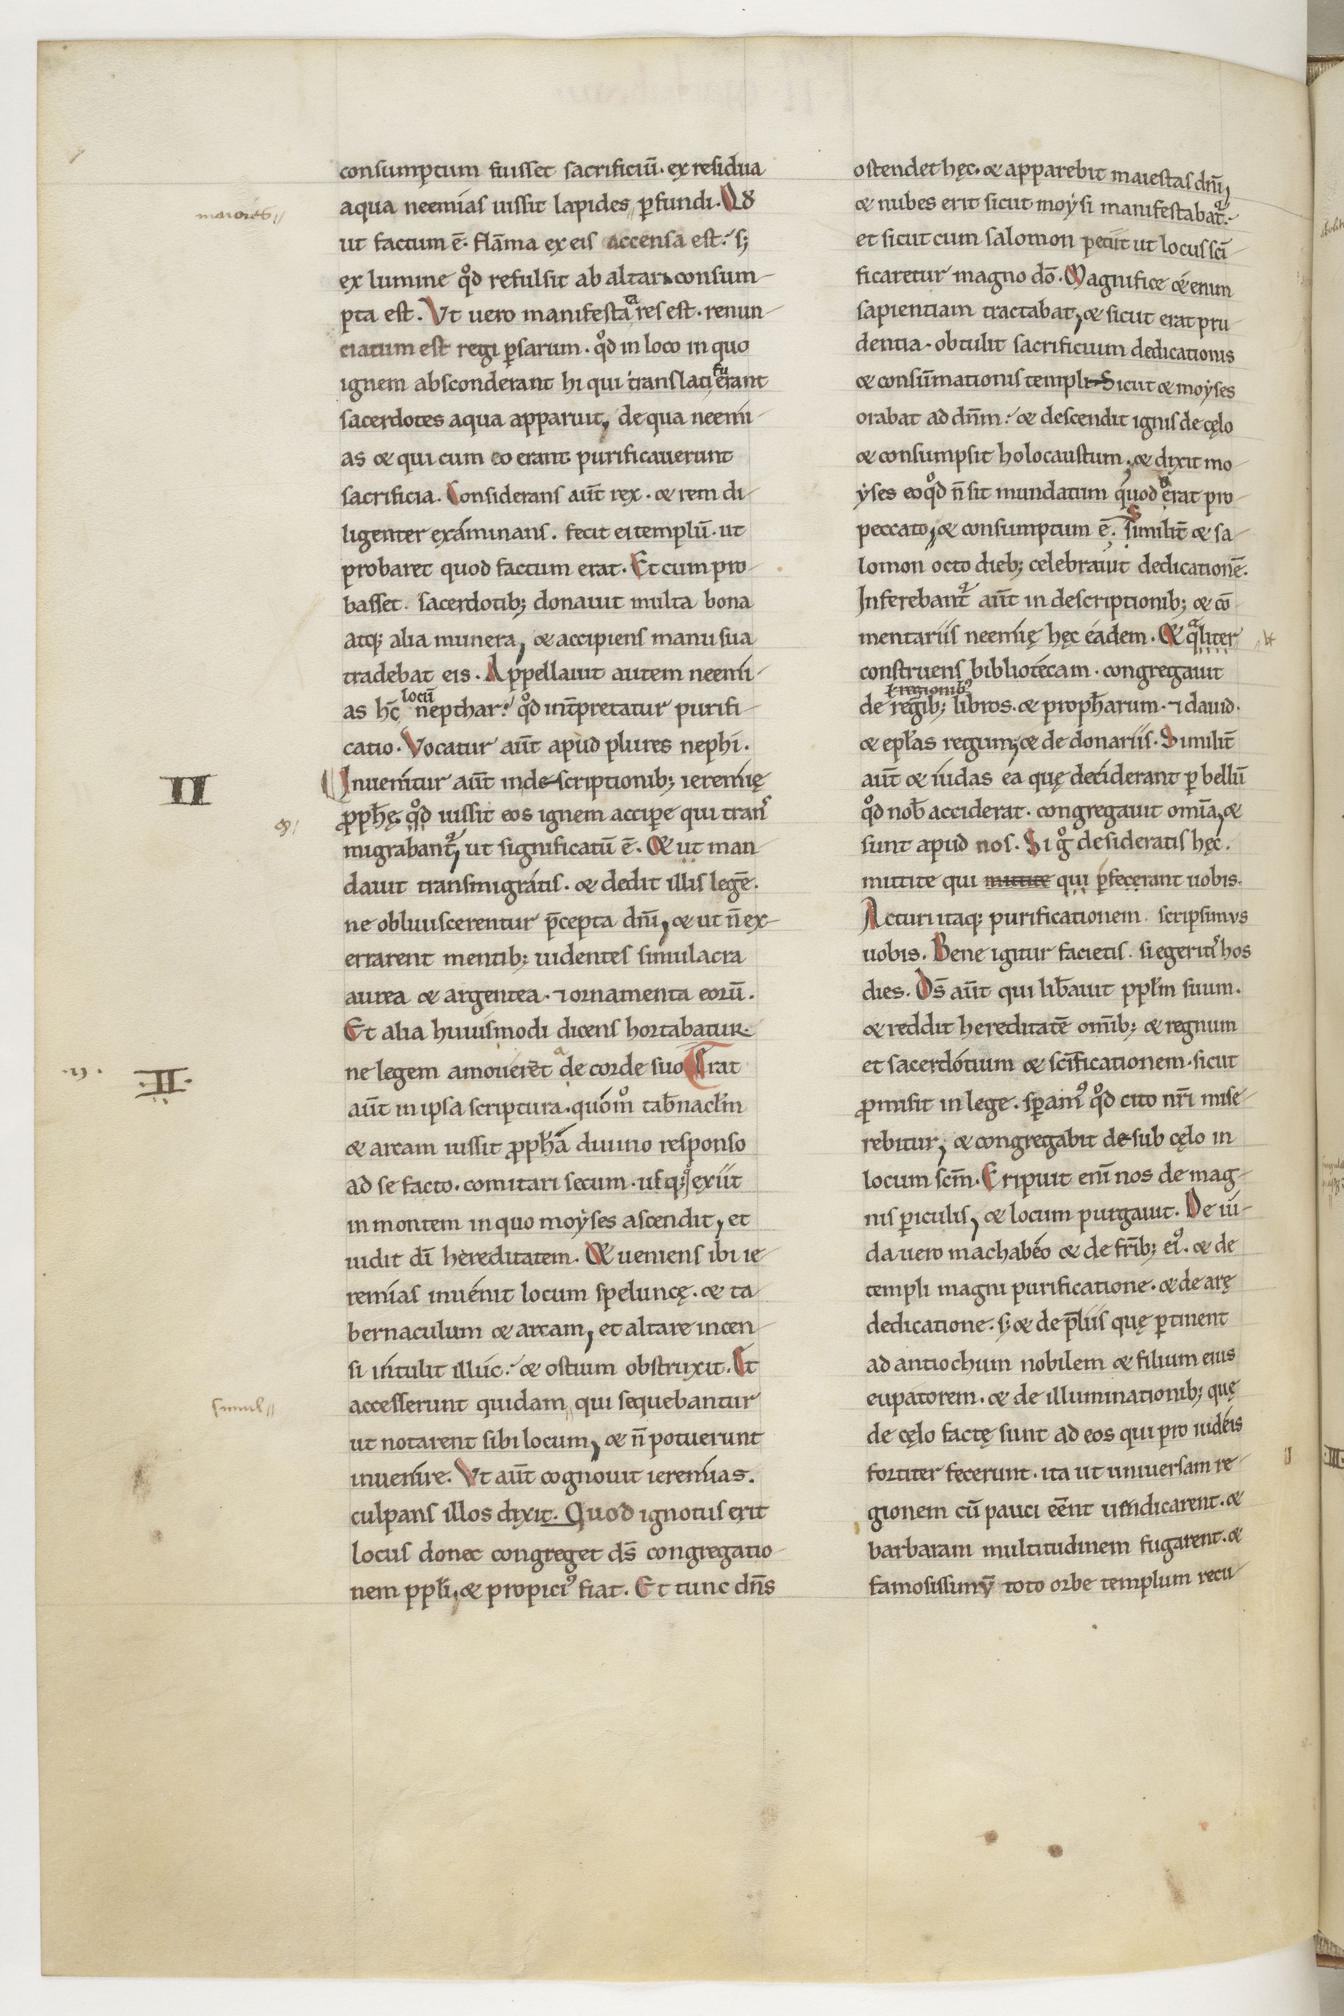 consumptum fuisset sacrificiū. ex residua
maiores//
aqua neemias iussit lapides // ꝑfundi. Qđ
ut factum ē. flāma ex eis accensa est. s;
ex lumine qͦd refulsit ab altari consum-
pta est. Vt uero manifestaͣ res est. renun-
ciatum est regi ꝑsarum. qͦd in loco in quo
ignem absconderant hi qui translati fuerant
sacerdotes aqua apparuit, de qua neemi-
as & qui cum eo erant purificauerunt
sacrificia. Considerans aūt rex. & rem di-
ligenter examinans. fecit ei templū. ut
probaret quod factum erat. Et cum pro-
basset. sacerdotib; donauit multa bona
atq; alia munera, & accipiens manu sua
tradebat eis. Appellauit autem neemi-
as hc̄ locū nepthar. qͦd int̄pretatur purifi-
catio. Vocatur aūt apud plures nephi.
II
Inuenitur aūt in de-scriptionib; ieremię
ꝓpħę. qͦd iussit eos ignem accipe qui trans-
migrabant᷑, ut significatū ē. & ut man-
dauit transmigratis. & dedit illis legē.
ne obliuiscerentur p̄cepta dn̄i, & ut n̄ ex-
errarent mentib; uidentes simulacra
aurea & argentea. ⁊ ornamenta eorū.
Et alia huiusmodi dicens hortabatur
ne legem amouerēt a de corde suo Erat
.ii. .II.
aūt in ipsa scriptura. quomͦ tab̄nacl̄m
& arcam iussit ꝓpħā diuino responso
ad se facto. comitari secum. usq; qͦ exiit
in montem in quo moyses ascendit, et
uidit dī hereditatem. & ueniens ibi ie-
remias inuenit locum speluncę. & ta-
bernaculum & arcam, et altare incen-
si intulit illuc. & ostium obstruxit. Et
simul//
accesserunt quidam // qui sequebantur
ut notarent sibi locum, & n̄ potuerunt
inuenire. Vt aūt cognouit ieremias.
culpans illos dixit. Quod ignotus erit
locus donec congreget dš congregatio-
nem ppl̄i, & propici᷒ fiat. Et tunc dn̄s
ostendet hęc. & apparebit maiestas dn̄i,
& nubes erit sicut moysi manifestabat᷑.
et sicut cum salomon petiit ut locus scī-
ficaretur magno dō. Magnifice &enim
sapientiam tractabat, & sicut erat pru-
dentia. obtulit sacrificium dedicationis
& consūmationis templi. Sicut & moyses
orabat ad dn̄m. & descendit ignis de cęlo
& consumpsit holocaustum, & dixit mo-
yses eo qͦd n̄ sit mundatum quod erat pro
peccato, & consumptum ē. Similit̄ & sa-
lomon octo dieb; celebrauit dedicationē.
Inferebant᷑ aūt in descriptionib; & cō-
mentariis neemię hęc eadem. & qͣliter
construens bibliotecam. congregauit
ł regionib᷒
de regīb; libros. & propħarum. ⁊ dauid.
& epl̄as regum, & de donariis. Similit̄
aūt & iudas ea quę deciderant ꝑ bellū
qͦd nob̄ acciderat. congregauit omīa, &
sunt apud nos. Si gͦ desideratis hęc.
mittite qui mittite qui ꝑfecerant uobis.
Acturi itaq; purificationem. scripsimus
uobis. Bene igitur facietis. si egeritis hos
dies. Dš aūt qui lib̄auit ppl̄m suum.
& reddit hereditatē omīb; & regnum
et sacerdotium & scīficationem. sicut
ꝓmisit in lege. speram᷒ qͦd cito nr̄i mise-
rebitur, & congregabit de-sub cęlo in
locum scm̄. Eripuit enī nos de mag-
nis ꝑiculis, & locum purgauit. De iu-
da uero machabeo & de fr̄ib; ei᷒. & de
templi magni purificatione. & de arę
dedicatione. s; & de p̄liis quę ꝑtinent
ad antiochum nobilem & filium eius
eupatorem. & de illuminationib; quę
de cęlo factę sunt ad eos qui pro iudeis
fortiter fecerunt. ita ut uniuersam re-
gionem cū pauci eēnt uindicarent. &
barbaram multitudinem fugarent. &
famosissimū toto orbe templum recu-